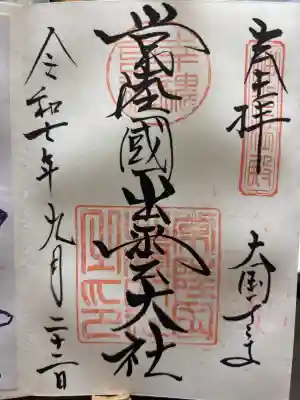 奉拝
大国さま
常陸國出雲大社
令和七年九月二十二日